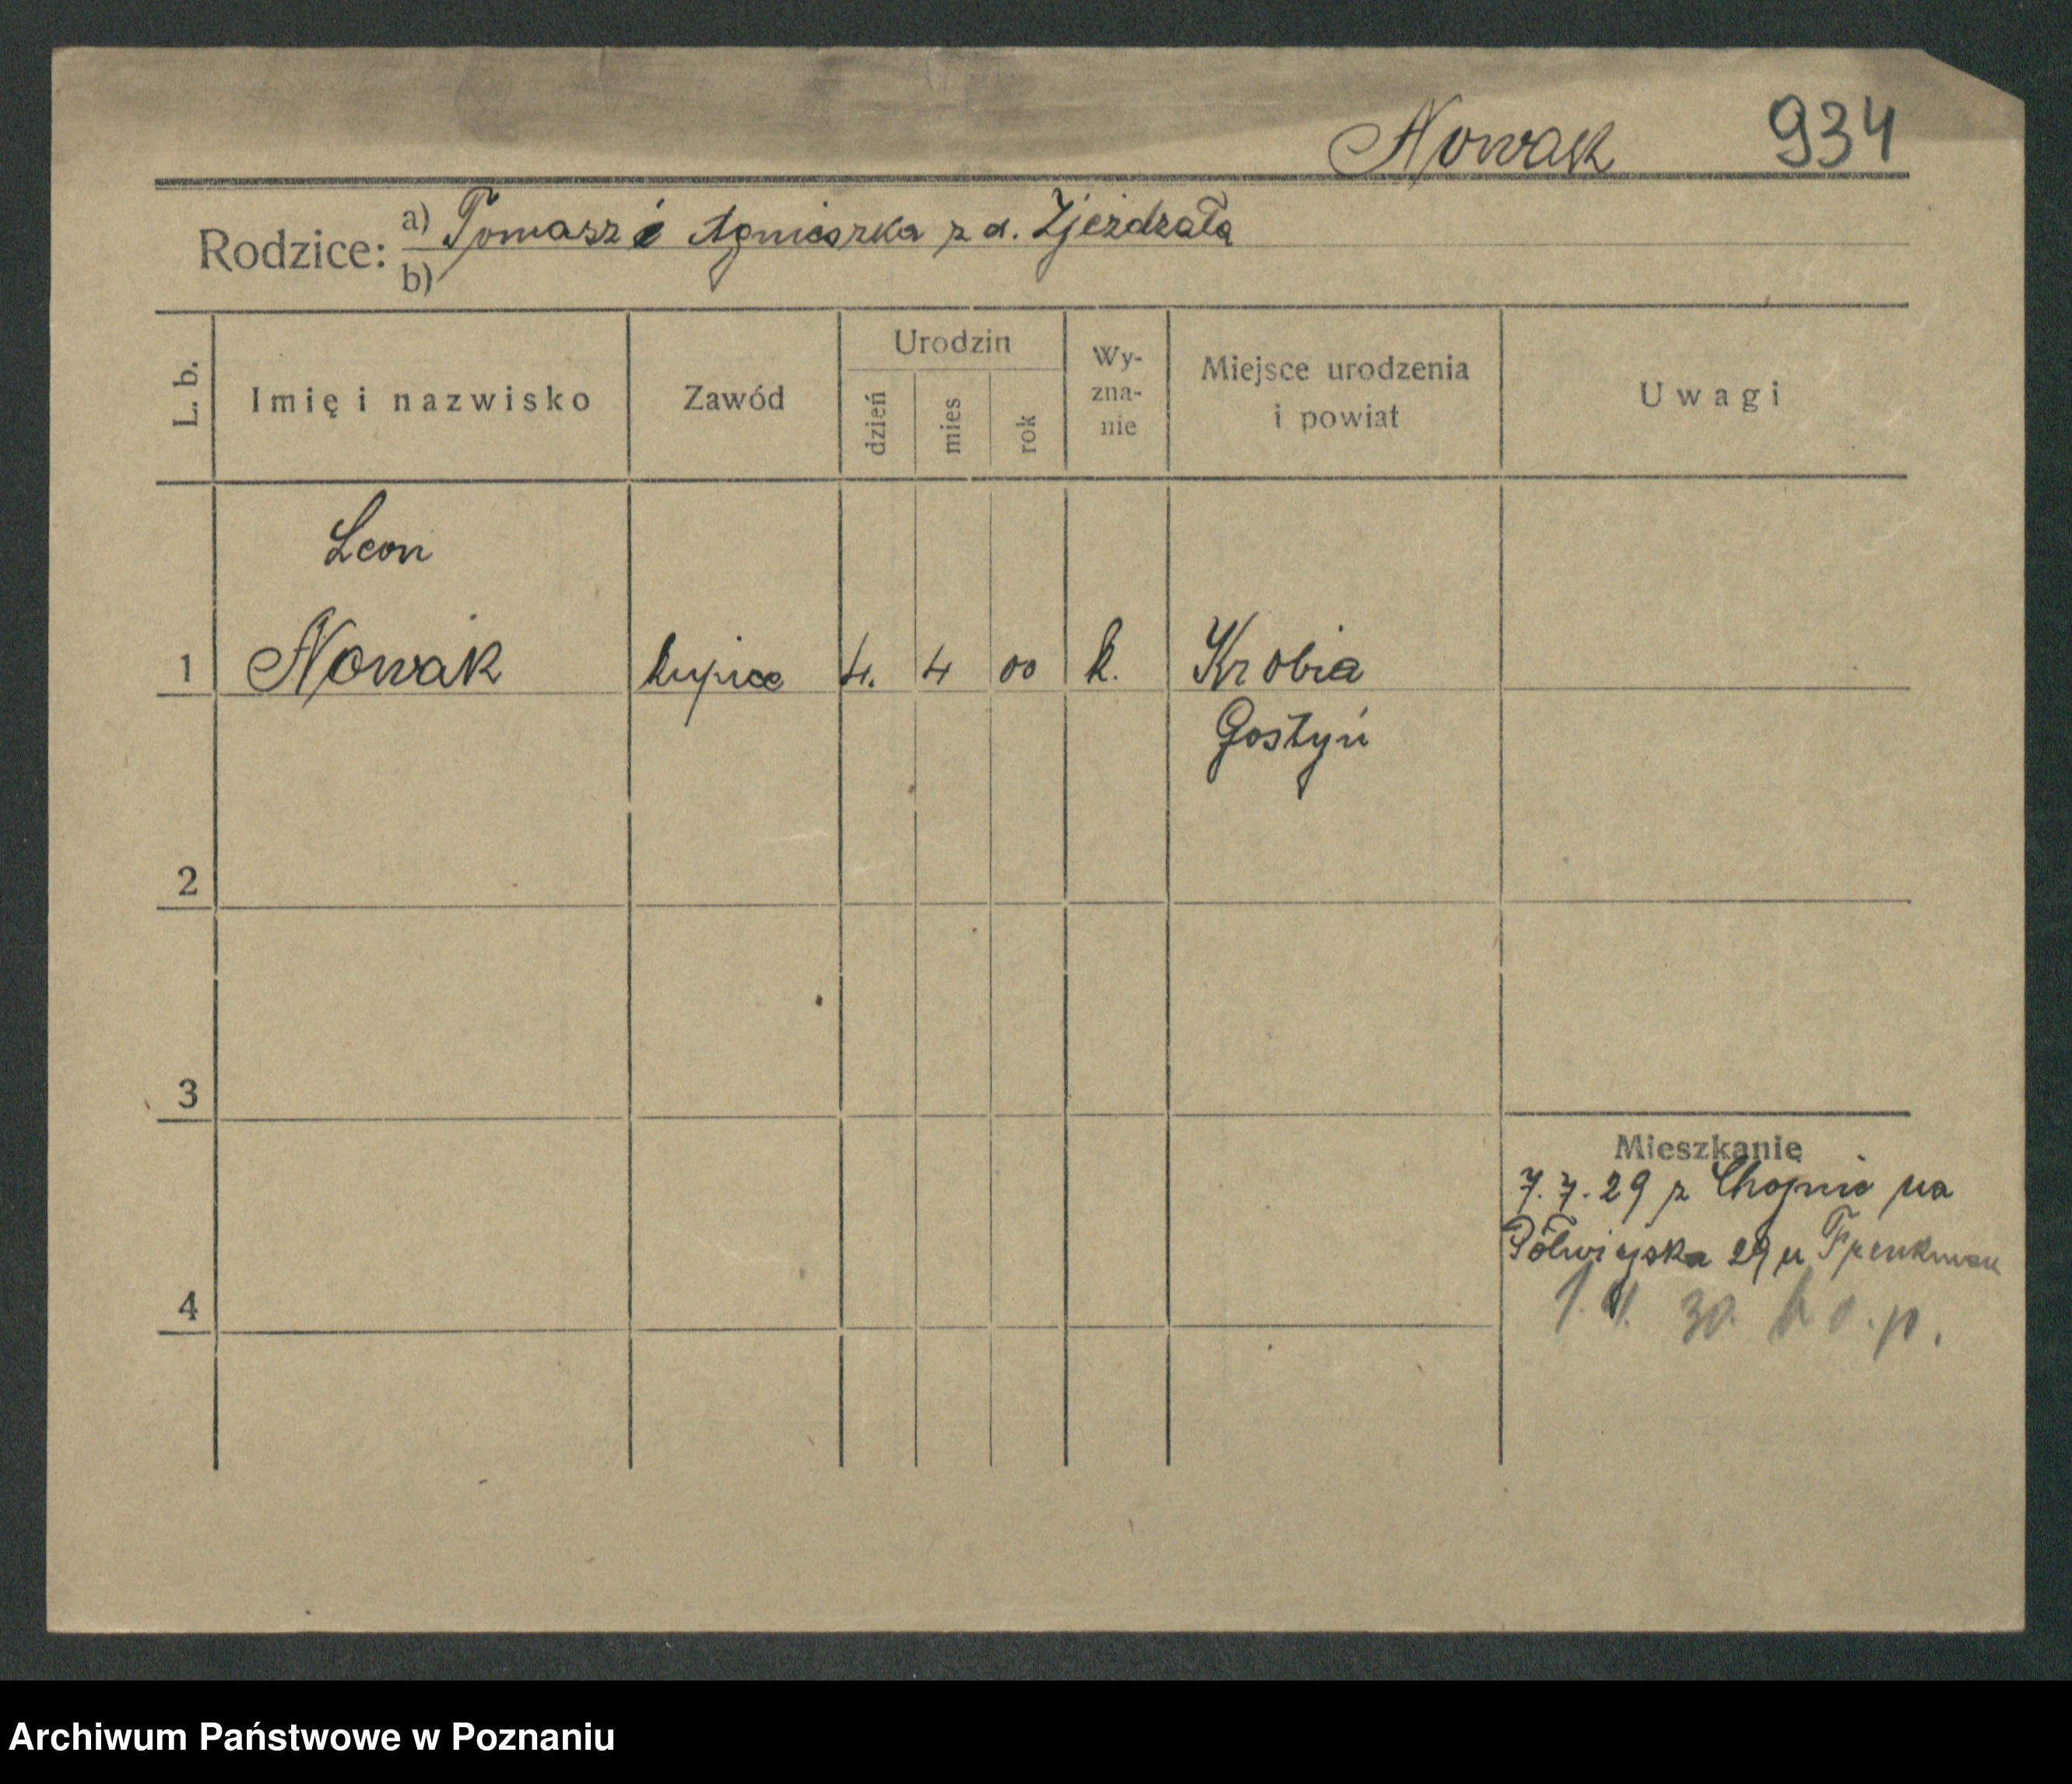 Nowak 934
Rodzice: a) Tomasz i Agnieszka z d. Zjeżdzała
b)
L. b. Imię i nazwisko Zawód Urodzin dzień mies rok Wy-zna-nie Miejsce urodzenia i powiat Uwagi
Leon
1 Nowak kupiec 4. 4 00 k. Krobia
Gostyń
2
3
Mieszkanie
7.7.29 z Chojnic na
Półwiejska 29 u
4
Archiwum Państwowe w Poznaniu